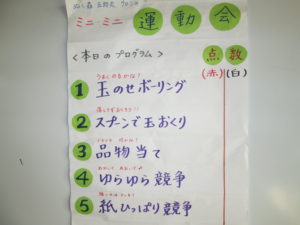 ミニミニ 運動会
<本日のプログラム> 点数
(赤)(白)
1 玉のせボーリング
2 スプーンで玉おくり
3 品物当て
4 ゆらゆら競争
5 紙ひっぱり競争